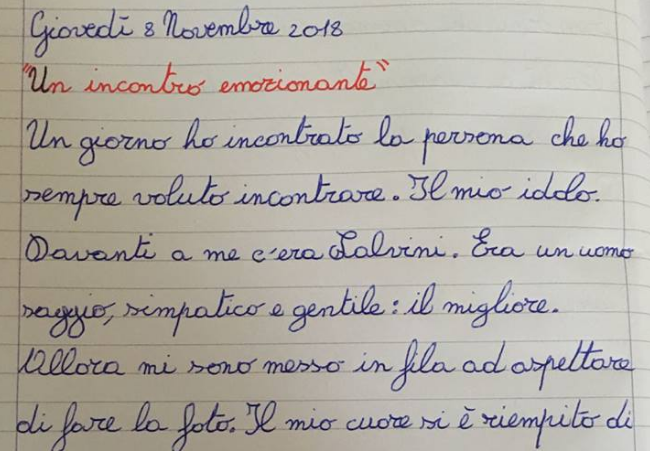 Giovedì 8 Novembre 2018
"Un incontro emozionante"
Un giorno ho incontrato la persona che ho
sempre voluto incontrare. Il mio idolo.
Davanti a me c'era Salvini. Era un uomo
saggio, simpatico e gentile: il migliore.
Allora mi sono messo in fila ad aspettare
di fare la foto. Il mio cuore si è riempito di